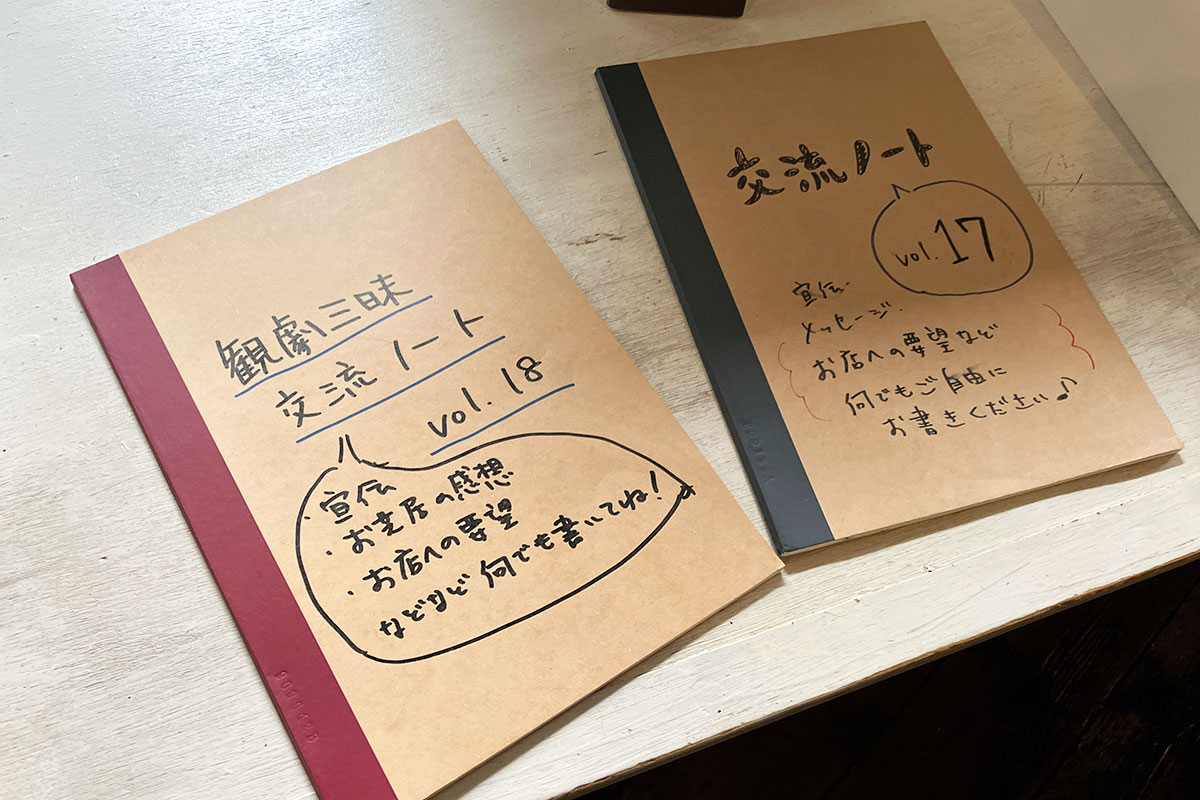 観劇三昧
交流ノート
vol.18
・宣伝
・お芝居の感想
・お店への要望
などなど 何でも書いてね!
交流ノート
vol.17
宣伝・
メッセージ・
お店への要望など
何でもご自由に
お書きください♪